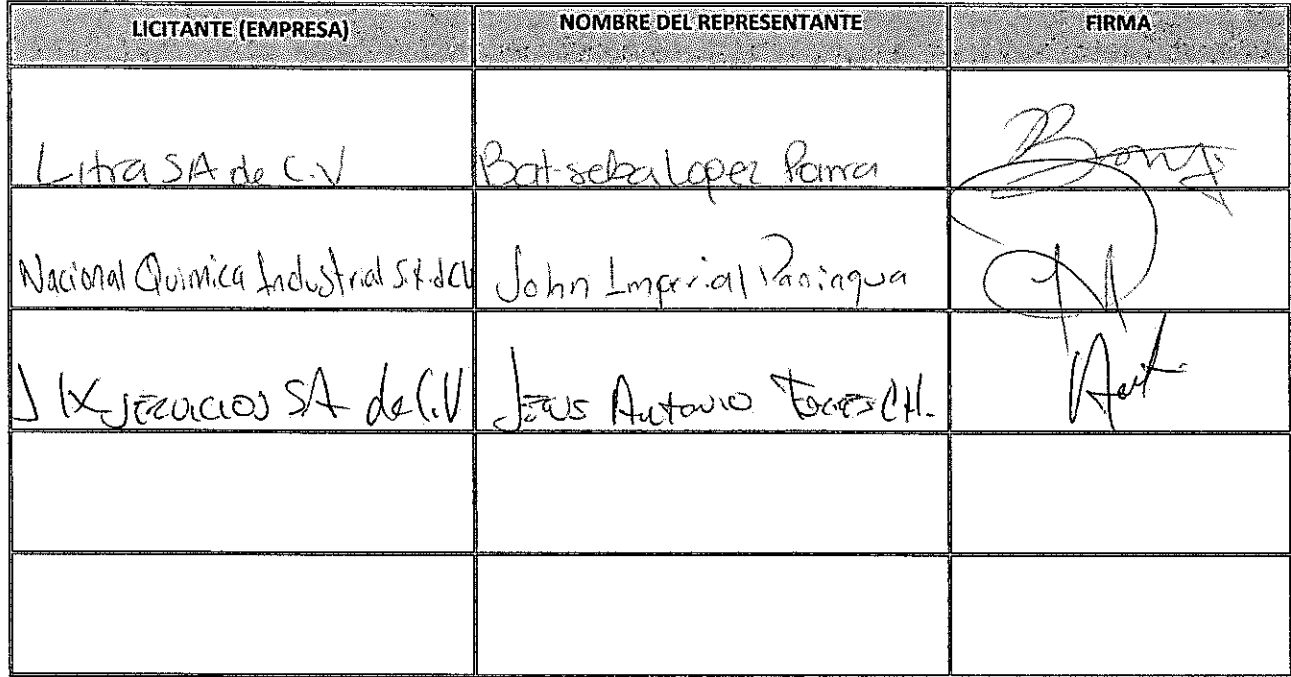 LICITANTE (EMPRESA) NOMBRE DEL REPRESENTANTE FIRMA
Litra SA de C.V Bat-seba Lopez Parra
Nacional Quimica Industrial S.A.d CV John Imperial Paniagua
SERVICIOS SA de C.V Jesus Antonio Torres CH.